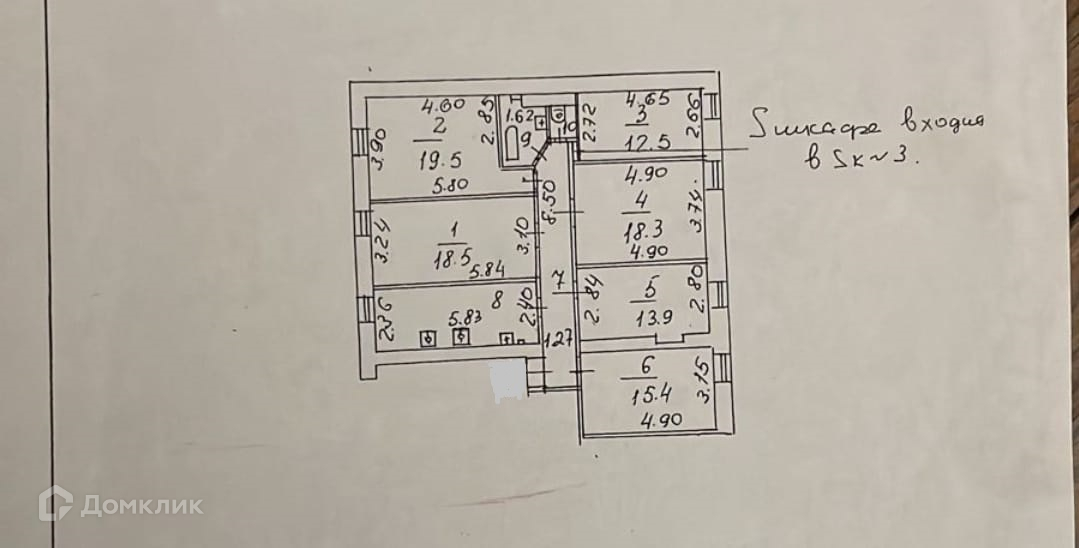 4.60
2
19.5
5.80
3.90
2.85
1.62
9
10
2.72
4.65
3
12.5
2.66
Sшкафа входит
в Sк~3.
1
18.5
5.84
3.24
3.10
8.50
4.90
4
18.3
4.90
3.74
8
5.83
2.36
2.40
7
127
2.84
5
13.9
2.80
6
15.4
4.90
3.15
Домклик